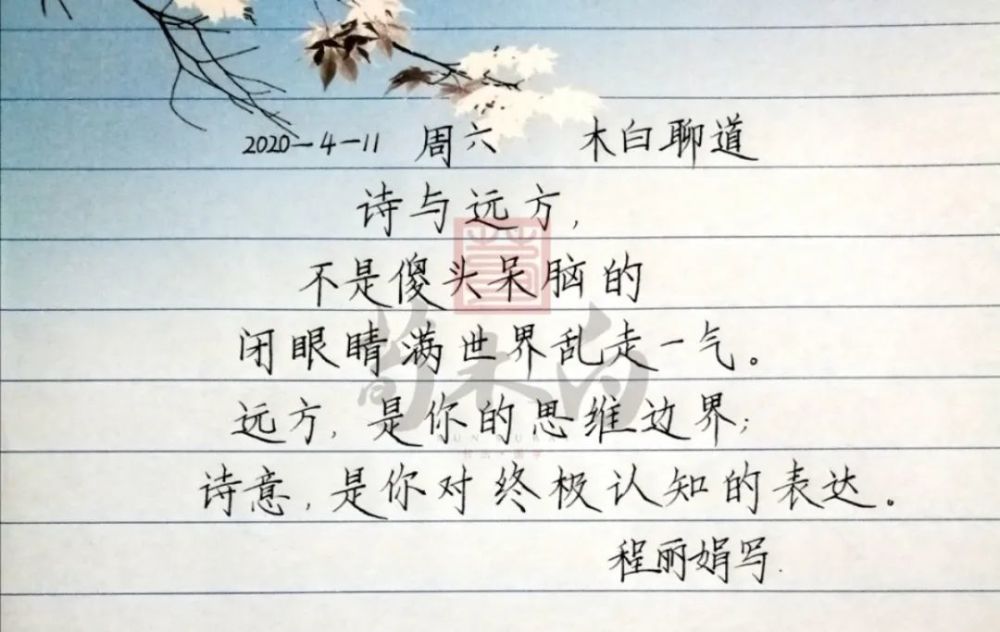 2020-4-11 周六 木白聊道
诗与远方,
不是傻头呆脑的
闭眼睛满世界乱走一气。
荀木白
远方,是你的思维边界;
诗意,是你对终极认知的表达。
程丽娟写.